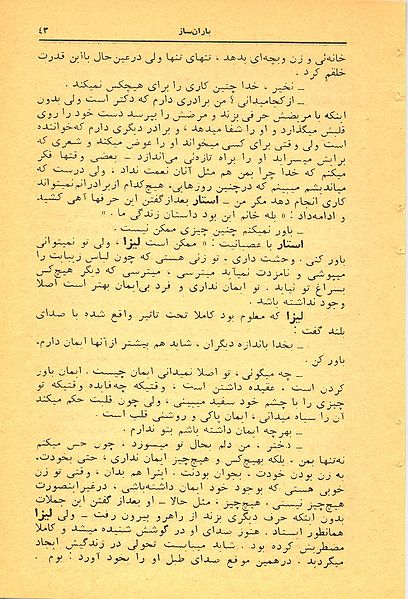 باران‌ساز ۴۳
خانه‌ئی و زن وبچه‌ای بدهد ، تنهای تنها ولی درعین‌حال بااین قدرت
خلقم کرد .
ــ نخیر ، خدا چنین کاری را برای هیچکس نمیکند .
ــ ازکجامیدانی ؟ من برادری دارم که دکتر است ولی بدون
اینکه با مریضش حرفی بزند و مرضش را بپرسد دست خود را روی
قلبش میگذارد و او را شفا میدهد ، و برادر دیگری دارم که‌خواننده
است ولی وقتی برای کسی میخواند او را عوض میکند و شعری که
برایش میسراید او را براه تازه‌ئی می‌اندازد ــ بعضی وقتها فکر
میکنم که خدا چرا بمن هم مثل آنان نعمت نداد ، ولی درست که
میاندیشم میبینم که درچنین روزهایی، هیچ‌کدام ازبرادرانم‌نمیتواند
کاری انجام دهد مگر من ــ استار بعدازگفتن این حرفها آهی کشید
و ادامه‌داد : « بله خانم این بود داستان زندگی ما . »
ــ باور نمیکنم چنین چیزی ممکن نیست .
استار با عصبانیت : « ممکن است لیزا ، ولی تو نمیتوانی
باور کنی . وحشت داری ، تو زنی هستی که چون لباس زیبایت را
میپوشی و نامزدت نمیآید میترسی ، میترسی که دیگر هیچ‌کس
بسراغ تو نیاید . تو ایمان نداری و فرد بی‌ایمان بهتر است اصلا
وجود نداشته باشد .
لیزا که معلوم بود کاملا تحت تاثیر واقع شده با صدای
بلند گفت :
ــ بخدا باندازه دیگران ، شاید هم بیشتر ازآنها ایمان دارم،
باور کن .
ــ چه میگوئی ، تو اصلا نمیدانی ایمان چیست . ایمان باور
کردن است ، عقیده داشتن است ، وقتیکه چه‌فایده وقتیکه تو
چیزی را با چشم خود سفید میبینی ، ولی چون قلبت حکم میکند
آن را سیاه میدانی ، ایمان پاکی و روشنی قلب است
ــ بهرچه ایمان داشته باشم بتو ندارم .
ــ دختر ، من دلم بحال تو میسوزد . چون حس میکنم
نه‌تنها بمن . بلکه بهیچ‌کس و هیچ‌چیز ایمان نداری ، حتی بخودت.
به زن بودن خودت . بجوان بودنت . اینرا هم بدان ، وقتی تو زن
خوبی هستی که بوجود خود ایمان داشته‌باشی ، درغیراینصورت
هیچ‌چیز نیستی . هیچ‌چیز ، مثل حالا ــ او بعداز گفتن این جملات
بدون اینکه حرف دیگری بزند از راهرو بیرون رفت ــ ولی لیزا
همانطور ایستاد . هنوز صدای او در گوشش شنیده میشد و کاملا
مضطربش کرده بود . شاید میبایست تحولی در زندگیش ایجاد
میگردید . درهمین موقع صدای طبل او را بخود آورد : بوم .